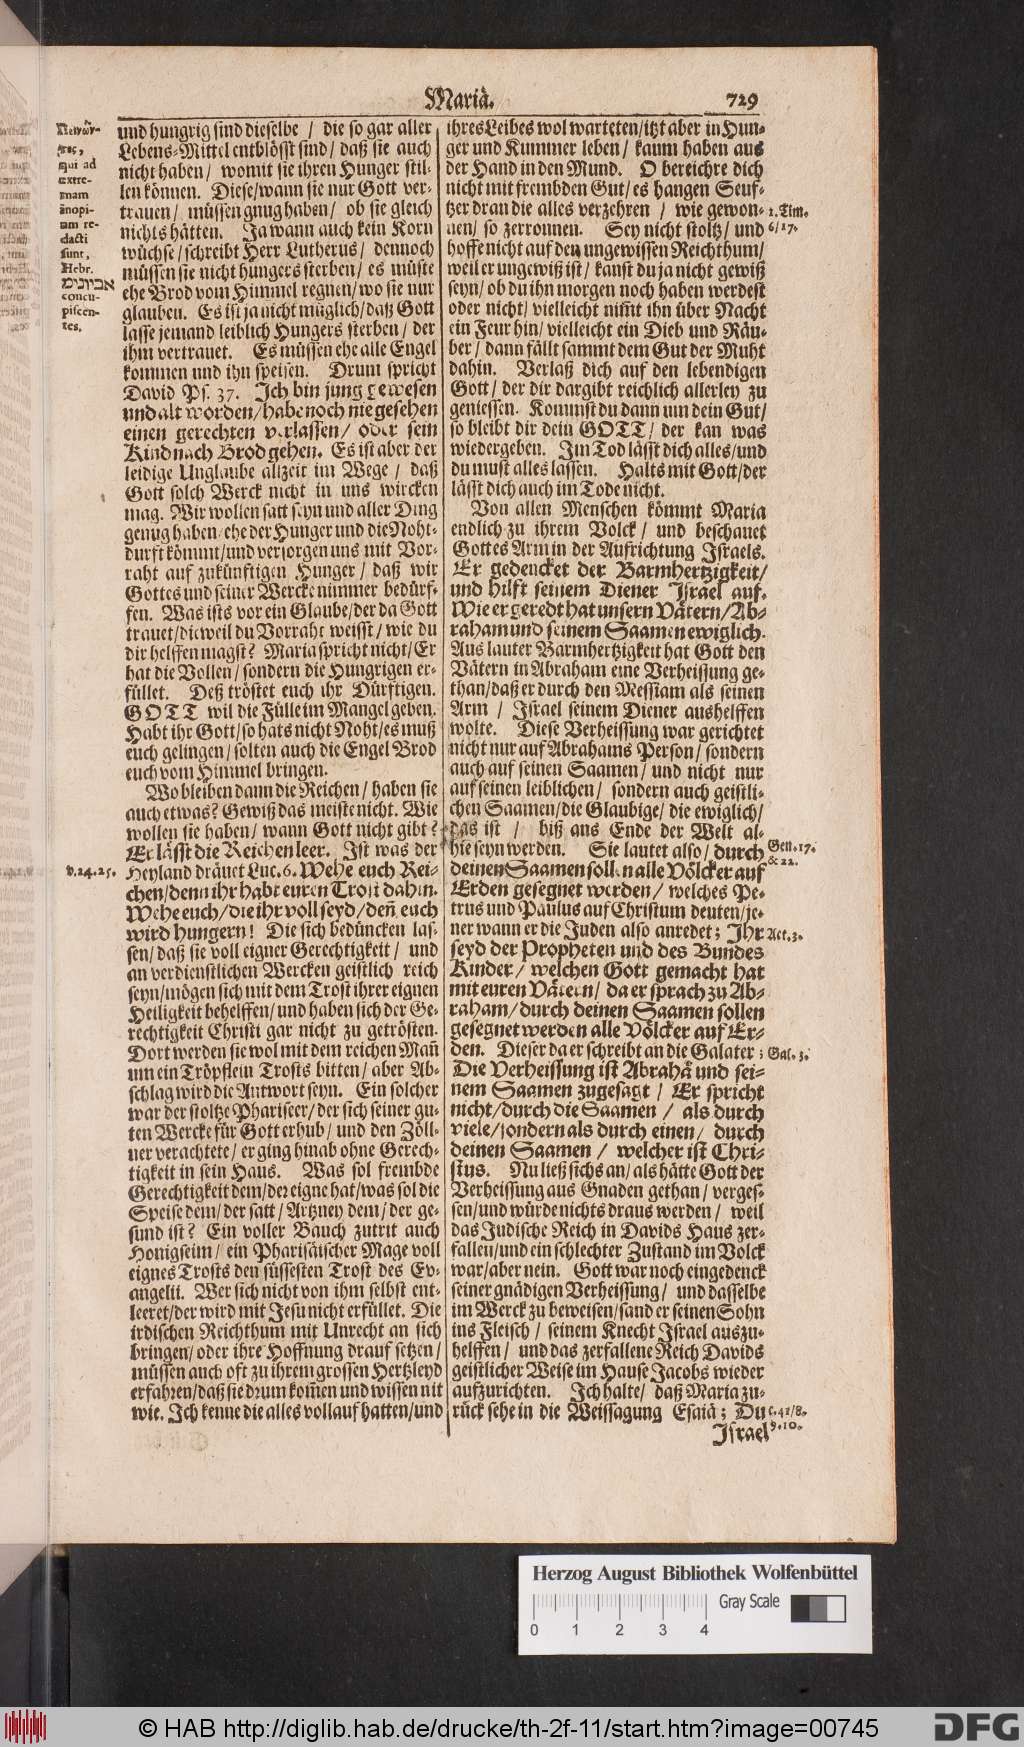 Mariä.
729
Πεινῶν-
τες,
qui ad
extre-
mam
änopi-
am re-
dacti
sunt,
Hebr.
אביונים
concu-
piscen-
tes.
und hungrig sind dieselbe / die so gar aller
Lebens-Mittel entblösst sind / daß sie auch
nicht haben / womit sie ihren Hunger stil-
len können. Diese / wann sie nur Gott ver-
trauen / müssen gnug haben / ob sie gleich
nichts hätten. Ja wann auch kein Korn
wüchse / schreibt Herr Lutherus / dennoch
müssen sie nicht hungers sterben / es müste
ehe Brod vom Himmel regnen / wo sie nur
glauben. Es ist ja nicht müglich / daß Gott
lasse jemand leiblich Hungers sterben / der
ihm vertrauet. Es müssen ehe alle Engel
kommen und ihn speisen. Drum spricht
David Ps. 37. Ich bin jung gewesen
und alt worden / habe noch nie gesehen
einen gerechten verlassen / oder sein
Kind nach Brod gehen. Es ist aber der
leidige Unglaube allzeit im Wege / daß
Gott solch Werck nicht in uns wircken
mag. Wir wollen satt seyn und aller Ding
genug haben / ehe der Hunger und die Noht-
durft kömmt / und versorgen uns mit Vor-
raht auf zukünftigen Hunger / daß wir
Gottes und seiner Wercke nimmer bedürf-
fen. Was ists vor ein Glaube / der da Gott
trauet / dieweil du Vorraht weisst / wie du
dir helffen magst? Maria spricht nicht / Er
hat die Vollen / sondern die Hungrigen er-
füllet. Deß tröstet euch ihr Dürftigen.
GOTT wil die Fülle im Mangel geben.
Habt ihr Gott / so hats nicht Noht / es muß
euch gelingen / solten auch die Engel Brod
euch vom Himmel bringen.
Wo bleiben dann die Reichen / haben sie
auch etwas? Gewiß das meiste nicht. Wie
wollen sie haben / wann Gott nicht gibt?
Er lässt die Reichen leer. Ist was der
v.24.25. Heyland dräuet Luc. 6. Wehe euch Rei-
chen / denn ihr habt euren Trost dahin.
Wehe euch / die ihr voll seyd / deñ euch
wird hungern! Die sich bedüncken las-
sen / daß sie voll eigner Gerechtigkeit / und
an verdienstlichen Wercken geistlich reich
seyn / mögen sich mit dem Trost ihrer eignen
Heiligkeit behelffen / und haben sich der Ge-
rechtigkeit Christi gar nicht zu getrösten.
Dort werden sie wol mit dem reichen Mañ
um ein Tröpflein Trosts bitten / aber Ab-
schlag wird die Antwort seyn. Ein solcher
war der stoltze Phariseer / der sich seiner gu-
ten Wercke für Gott erhub / und den Zöll-
ner verachtete / er ging hinab ohne Gerech-
tigkeit in sein Haus. Was sol frembde
Gerechtigkeit dem / der eigne hat / was sol die
Speise dem / der satt / Artzney dem / der ge-
sund ist? Ein voller Bauch zutrit auch
Honigseim / ein Pharisäischer Mage voll
eignes Trosts den süssesten Trost des Ev-
angelii. Wer sich nicht von ihm selbst ent-
leeret / der wird mit Jesu nicht erfüllet. Die
irdischen Reichthum mit Unrecht an sich
bringen / oder ihre Hoffnung drauf setzen /
müssen auch oft zu ihrem grossen Hertzleyd
erfahren / daß sie drum kom̃en und wissen nit
wie. Ich kenne die alles vollauf hatten / und
ihres Leibes wol warteten / itzt aber in Hun-
ger und Kummer leben / kaum haben aus
der Hand in den Mund. O bereichre dich
nicht mit frembden Gut / es hangen Seuf-
tzer dran die alles verzehren / wie gewon- 1. Tim.
nen / so zerronnen. Sey nicht stoltz / und 6/17.
hoffe nicht auf den ungewissen Reichthum /
weil er ungewiß ist / kanst du ja nicht gewiß
seyn / ob du ihn morgen noch haben werdest
oder nicht / vielleicht nim̃t ihn über Nacht
ein Feur hin / vielleicht ein Dieb und Räu-
ber / dann fällt sammt dem Gut der Muht
dahin. Verlaß dich auf den lebendigen
Gott / der dir dargibt reichlich allerley zu
geniessen. Kommst du dann um dein Gut /
so bleibt dir dein GOTT / der kan was
wiedergeben. Im Tod lässt dich alles / und
du must alles lassen. Halts mit Gott / der
lässt dich auch im Tode nicht.
Von allen Menschen kömmt Maria
endlich zu ihrem Volck / und beschauet
Gottes Arm in der Aufrichtung Israels.
Er gedencket der Barmhertzigkeit /
und hilft seinem Diener Israel auf.
Wie er geredt hat unsern Vätern / Ab-
raham und seinem Saamen ewiglich.
Aus lauter Barmhertzigkeit hat Gott den
Vätern in Abraham eine Verheissung ge-
than / daß er durch den Messiam als seinen
Arm / Israel seinem Diener aushelffen
wolte. Diese Verheissung war gerichtet
nicht nur auf Abrahams Person / sondern
auch auf seinen Saamen / und nicht nur
auf seinen leiblichen / sondern auch geistli-
chen Saamen / die Glaubige / die ewiglich /
das ist / biß ans Ende der Welt al-
hie seyn werden. Sie lautet also / durch Gen. 17.
deinen Saamen sollen alle Völcker auf & 22.
Erden gesegnet werden / welches Pe-
trus und Paulus auf Christum deuten / je-
ner wann er die Juden also anredet; Ihr Act. 3.
seyd der Propheten und des Bundes
Kinder / welchen Gott gemacht hat
mit euren Vätern / da er sprach zu Ab-
raham / durch deinen Saamen sollen
gesegnet werden alle Völcker auf Er-
den. Dieser da er schreibt an die Galater; Gal. 3.
Die Verheissung ist Abrahã und sei-
nem Saamen zugesagt / Er spricht
nicht / durch die Saamen / als durch
viele / sondern als durch einen / durch
deinen Saamen / welcher ist Chri-
stus. Nu ließ sichs an / als hätte Gott der
Verheissung aus Gnaden gethan / verges-
sen / und würde nichts draus werden / weil
das Jüdische Reich in Davids Haus zer-
fallen / und ein schlechter Zustand im Volck
war / aber nein. Gott war noch eingedenck
seiner gnädigen Verheissung / und dasselbe
im Werck zu beweisen / sand er seinen Sohn
ins Fleisch / seinem Knecht Israel auszu-
helffen / und das zerfallene Reich Davids
geistlicher Weise im Hause Jacobs wieder
aufzurichten. Ich halte / daß Maria zu-
rück sehe in die Weissagung Esaiä; Du c. 41/8.
Israel 9.10.
Herzog August Bibliothek Wolfenbüttel
Gray Scale
0 1 2 3 4
© HAB http://diglib.hab.de/drucke/th-2f-11/start.htm?image=00745
DFG